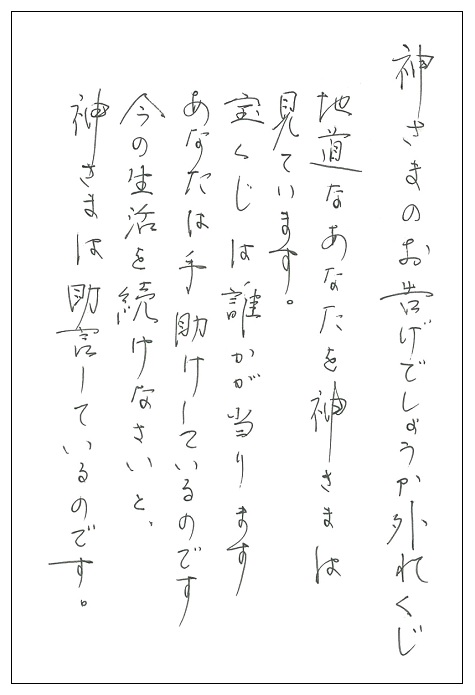 神さまのお告げでしょうか外れくじ
地道なあなたを神さまは
見ています。
宝くじは誰かが当ります
あなたは手助けしているのです
今の生活を続けなさいと、
神さまは助言しているのです。